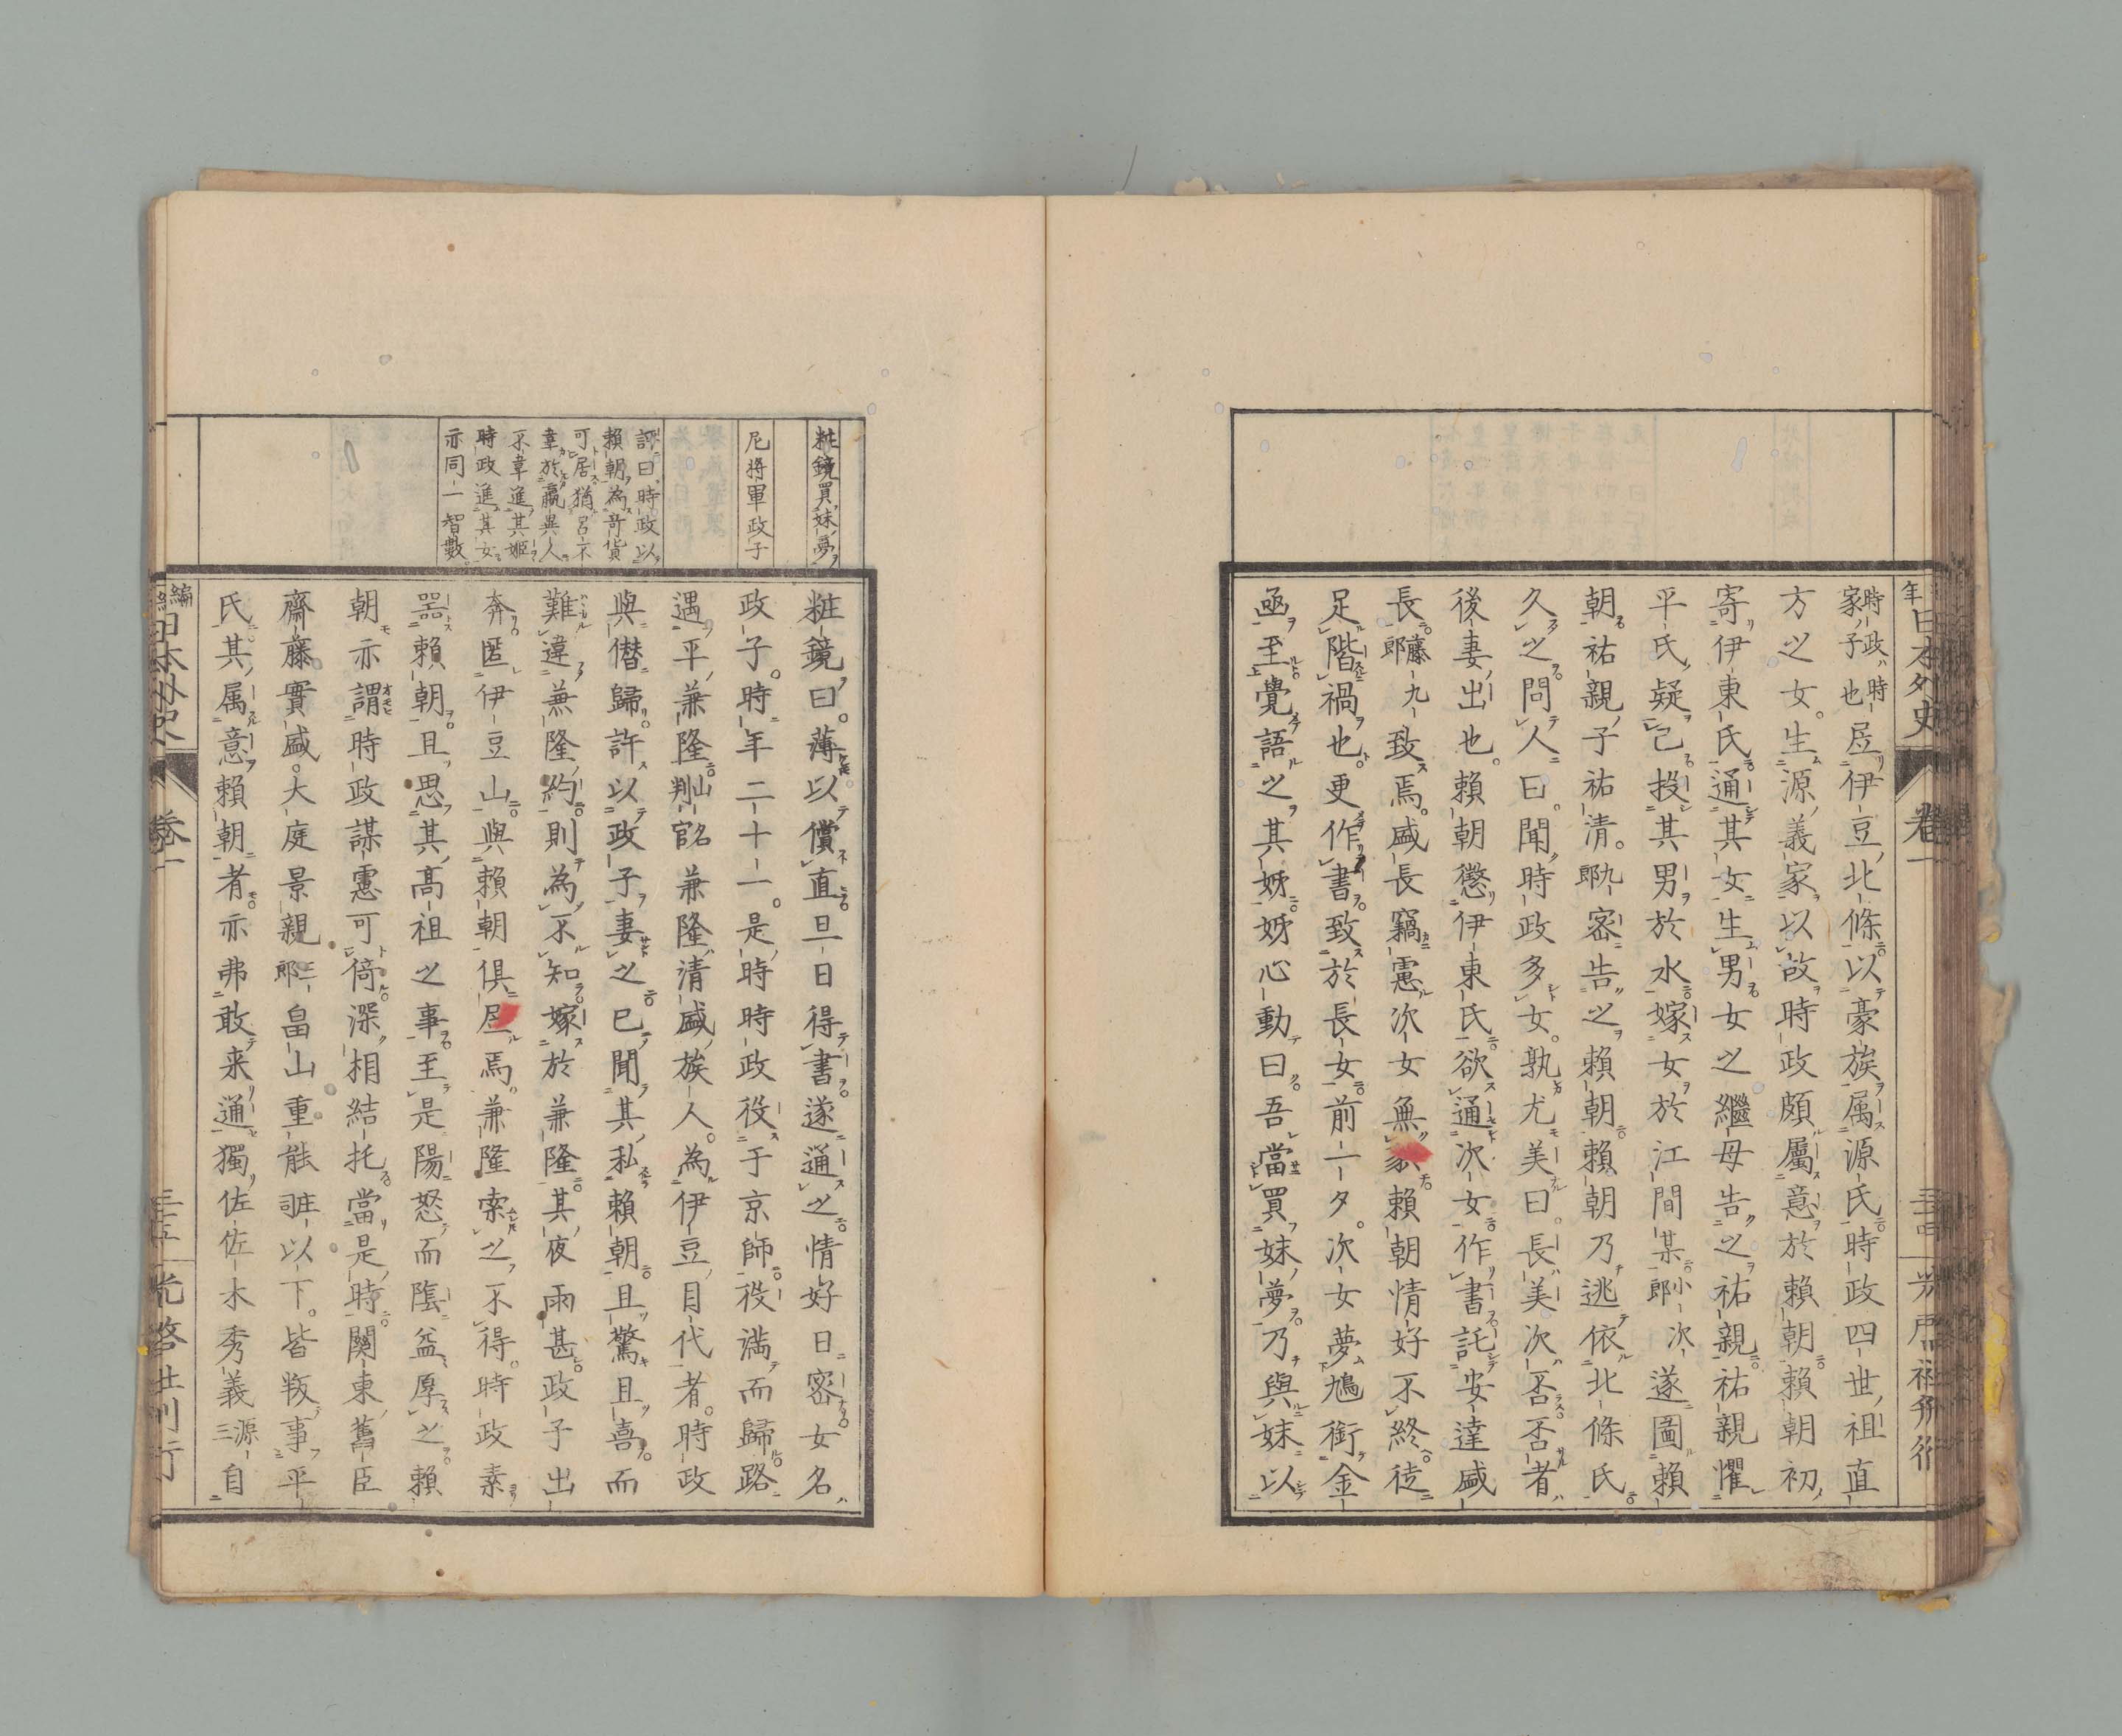 時政ハ時
家ノ子也
居伊豆北條以豪族属源氏時政四世祖直
方之女生源義家以故時政頗屬意於賴朝賴朝初
寄伊東氏通其女生男女之繼母告之祐親祐親懼
平氏疑己投其男於水嫁女於江間某小次郎遂圖賴
朝祐親子祐清九郎密告之賴朝賴朝乃逃依北條氏
久之問人曰聞時政多女孰尤美曰長美次否否者
後妻出也賴朝懲伊東氏欲通次女作書託安達盛
長藤九郎致焉盛長竊慮次女無貌賴朝情好不終徒
足階禍也更作書致於長女前一夕次女夢鳩銜金
函至覺語之其姊姊心動曰吾當買妹夢乃與妹以
粧鏡買妹夢
尼將軍政子
評曰時政以
賴朝為奇貨
可居猶呂不
韋於嬴異人
不韋進其姬
時政進其女
亦同一智數
粧鏡曰薄以償直旦日得書遂通之情好日密女名
政子時年二十一是時時政役于京師役滿而歸路
遇平兼隆山判官兼隆清盛族人為伊豆目代者時政
與僣歸許以政子妻之已聞其私賴朝且驚且喜而
難違兼隆約則為不知嫁於兼隆其夜雨甚政子出
奔匿伊豆山與賴朝俱居焉兼隆索之不得時政素
器賴朝且思其高祖之事至是陽怒而陰益厚之賴
朝亦謂時政謀慮可倚深相結托當是時關東舊臣
齋藤實盛大庭景親三郎畠山重能庄司以下皆叛事平
氏其属意賴朝者亦弗敢来通獨佐佐木秀義源三自
日本外史 卷一 三十五 光啓社刊行